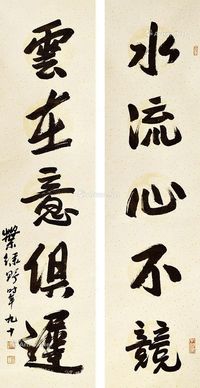 水流心不競
雲在意俱遲
葉綠野時年九十